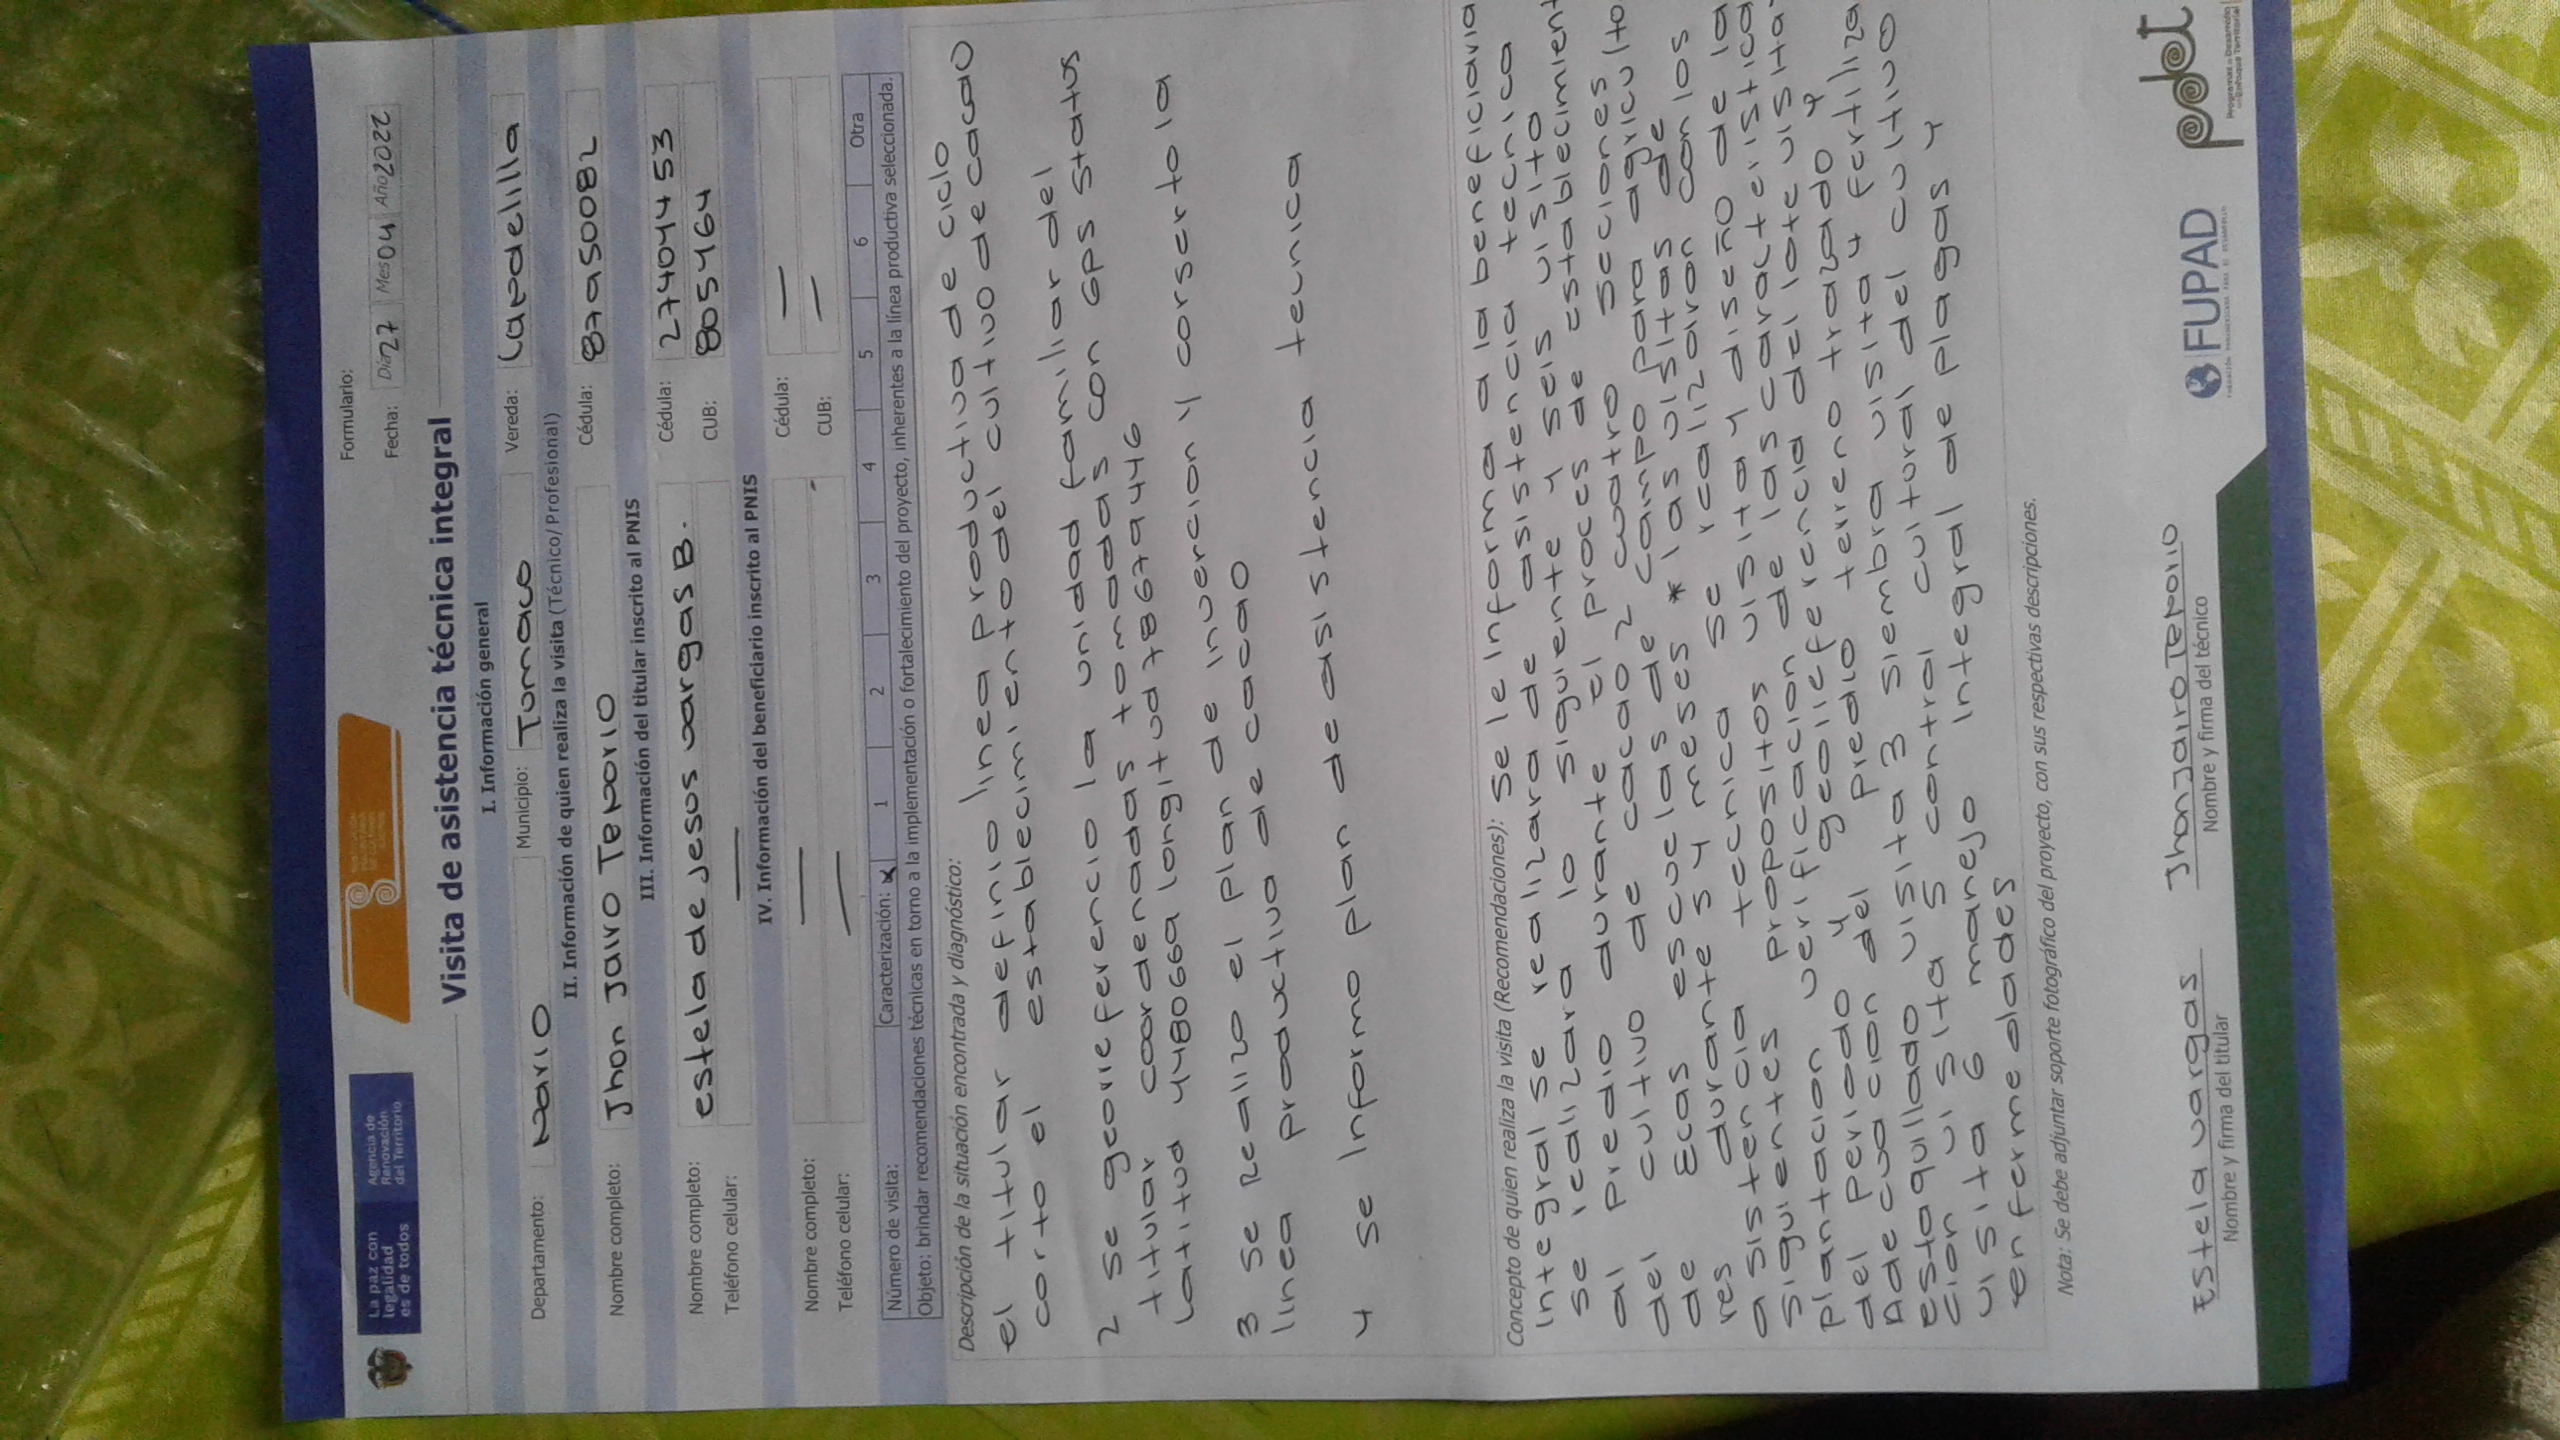 La paz con
legalidad
es de todos
Agencia de
Renovación
del Territorio
Formulario:
Fecha: Día 27 Mes 04 Año 2022
Visita de asistencia técnica integral
I. Información general
Departamento: Nariño Municipio: Tumaco Vereda: Capdelilla
II. Información de quien realiza la visita (Técnico/Profesional)
Nombre completo: Jhon Jairo Tenorio Cédula: 87950082
III. Información del titular inscrito al PNIS
Nombre completo: estela de Jesus vargas B. Cédula: 27404453
Teléfono celular: — CUB: 805464
IV. Información del beneficiario inscrito al PNIS
Nombre completo: — Cédula: —
Teléfono celular: — CUB: —
Número de visita: Caracterización: x 1 2 3 4 5 6 Otra
Objeto: brindar recomendaciones técnicas en torno a la implementación o fortalecimiento del proyecto, inherentes a la línea productiva seleccionada.
Descripción de la situación encontrada y diagnóstico:
el titular definio linea productiva de ciclo
corto el establecimiento del cultivo de cacao
2 se georieferencio la unidad familiar del
titular coordenadas tomadas con GPS status
Latitud 4480669 longitud 78679446
3 se Realizo el plan de inuercion y corserto la
linea productiva de cacao
4 se Informo plan de asistencia tecnica
Concepto de quien realiza la visita (Recomendaciones): se le informa a la beneficiaria
integral se realizara de asistencia tecnica
se realizara lo siguiente y seis visito
al predio durante el proces de establecimient
del cultivo de cacao 2 cuatro seciones
de Ecas escuelas de campo para agriculto
res durante 5 y meses * las visitas de
asistencia tecnica se realizaron con los
siguientes propositos visita y diseño de la
plantacion verificacion de las caracteristica
del periado y geolieferencia del lote visita
Adecuacion del predio terreno trazado y
estaquillado visita 3 siembra visita 4 fertiliza
cion visita 5 control cultural del cultivo
visita 6 manejo integral de plagas y
enfermedades
Nota: Se debe adjuntar soporte fotográfico del proyecto, con sus respectivas descripciones.
Estela vargas
Nombre y firma del titular
Jhon Jairo Tenorio
Nombre y firma del técnico
FUPAD
pdet
Programas de Desarrollo
con Enfoque Territorial